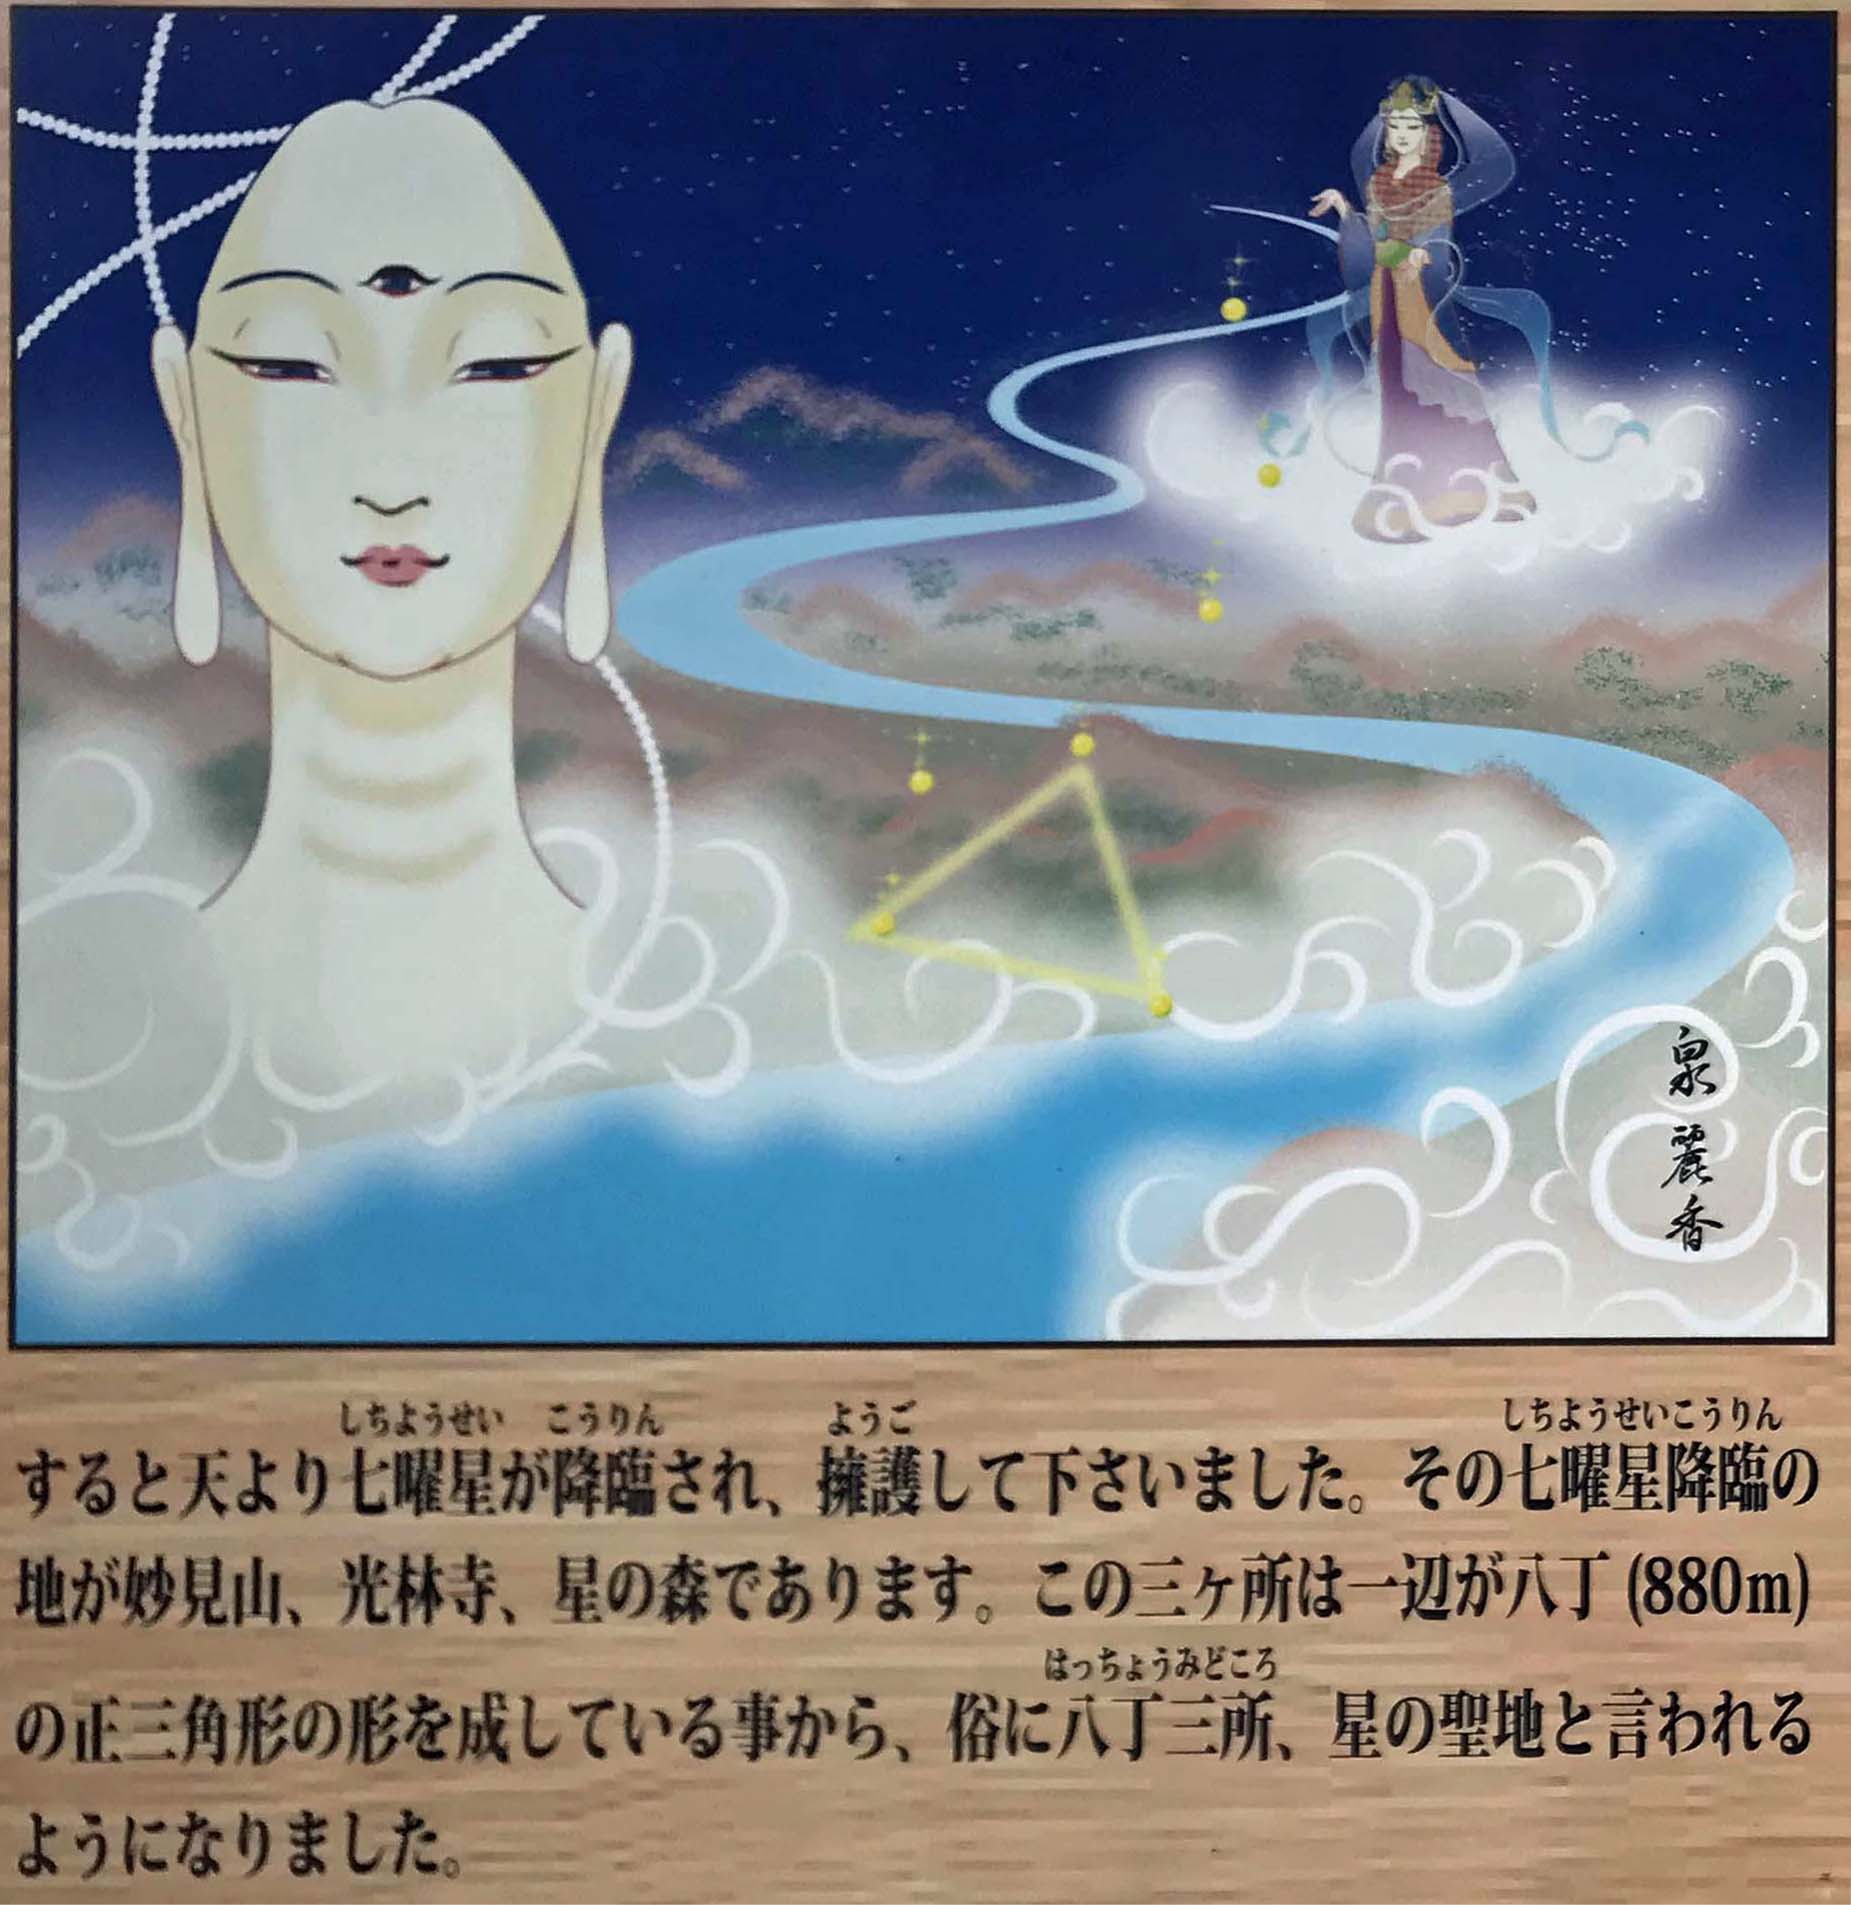 泉麗香
しちようせい こうりん ようご しちようせいこうりん
すると天より七曜星が降臨され、擁護して下さいました。その七曜星降臨の
地が妙見山、光林寺、星の森であります。この三ヶ所は一辺が八丁 (880m)
はっちょうみどころ
の正三角形の形を成している事から、俗に八丁三所、星の聖地と言われる
ようになりました。